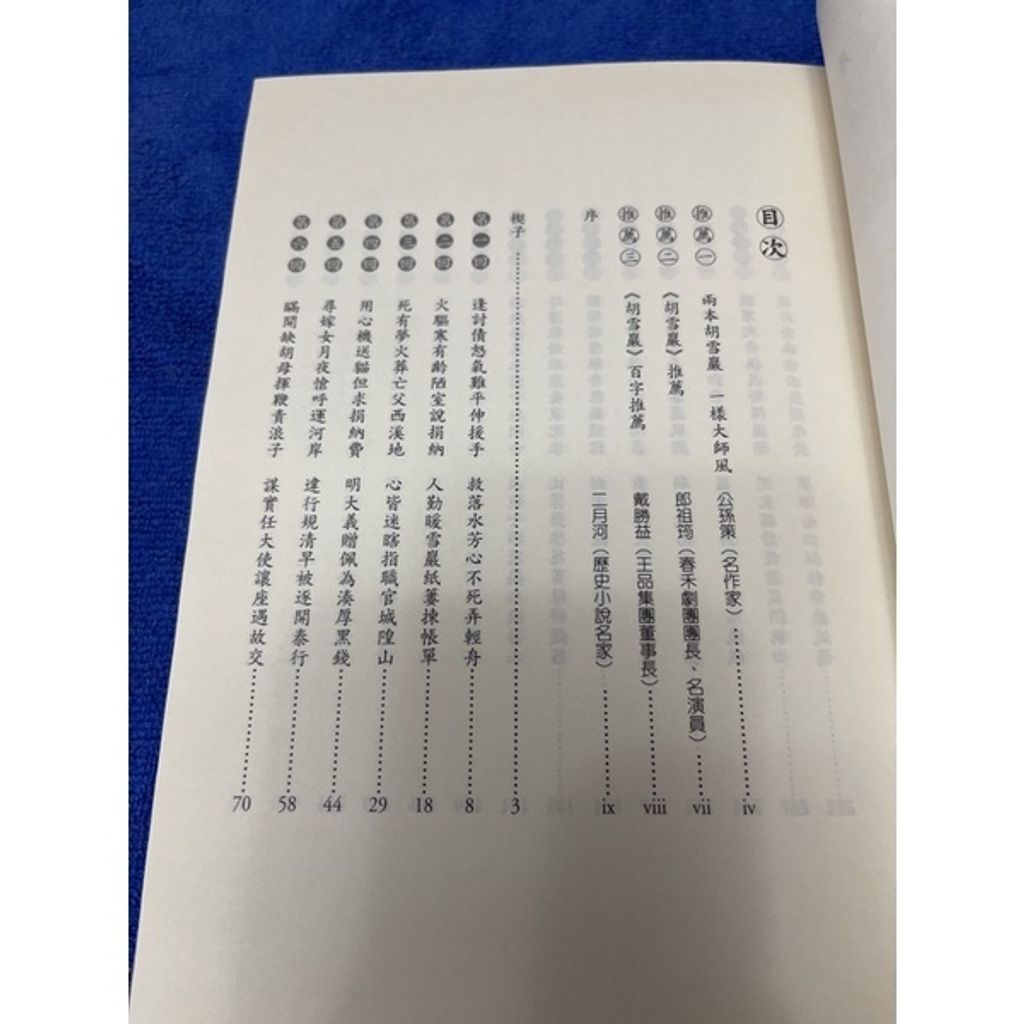 目次
推薦一 兩本胡雪巖 一樣大師風 公孫策（名作家）⋯⋯ iv
推薦二 《胡雪巖》推薦 郎祖筠（春禾劇團團長、名演員）⋯⋯ vii
推薦三 《胡雪巖》百字推薦 戴勝益（王品集團董事長）⋯⋯ viii
序 二月河（歷史小說名家）⋯⋯ ix
楔子⋯⋯ 3
第一回 逢討債怒氣難平伸援手 救落水芳心不死弄輕舟⋯⋯ 8
第二回 火驅寒有齡陋室說捐納 人勤暖雪巖紙簍揀帳單⋯⋯ 18
第三回 死有夢火葬亡父西溪地 心皆迷瞎指職官城隍山⋯⋯ 29
第四回 用心機送貓但求捐納費 明大義贈佩為湊厚黑錢⋯⋯ 44
第五回 尋嫁女月夜愴呼運河岸 違行規清早被逐開泰行⋯⋯ 58
第六回 瞞開缺胡母揮鞭責浪子 謀實任大使讓座遇故交⋯⋯ 70